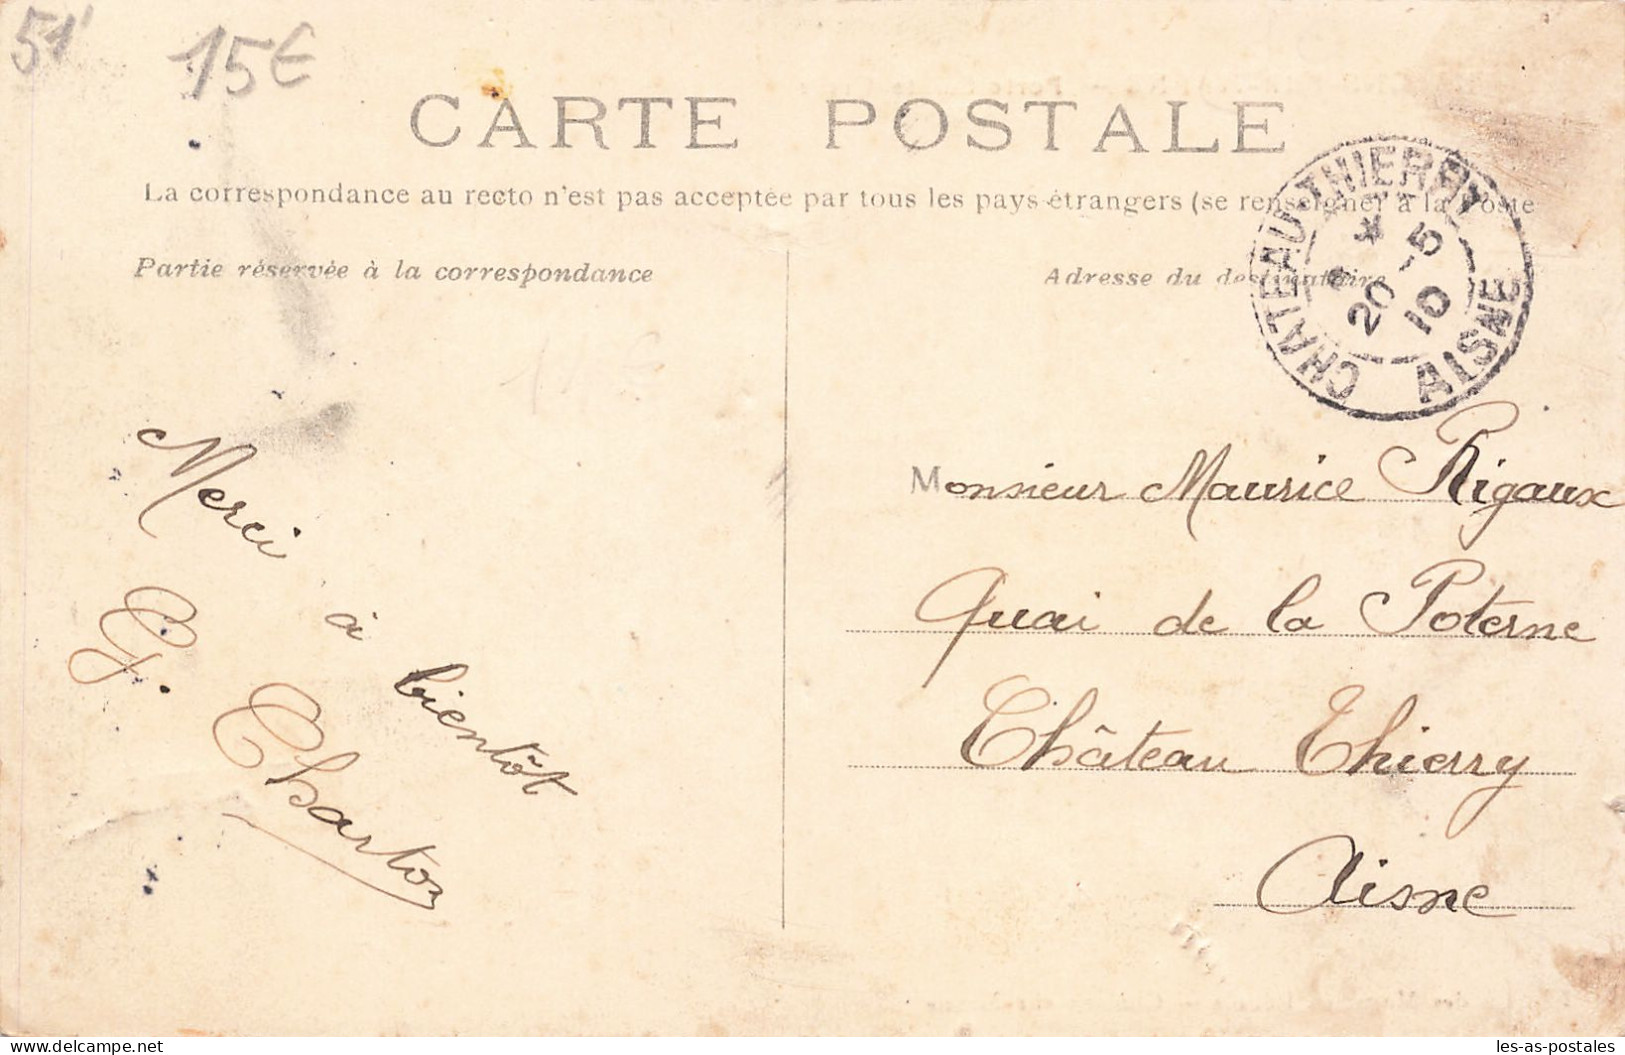 51
15€
CARTE POSTALE
La correspondance au recto n'est pas acceptée par tous les pays étrangers (se renseigner à la Poste
Partie réservée à la correspondance
Adresse du destinataire
CHATEAU-THIERRY
20 -5
10
AISNE
Merci à bientôt
G. Charton
Monsieur Maurice Rigaux
Quai de la Poterne
Château Thierry
Aisne
delcampe.net
les-as-postales